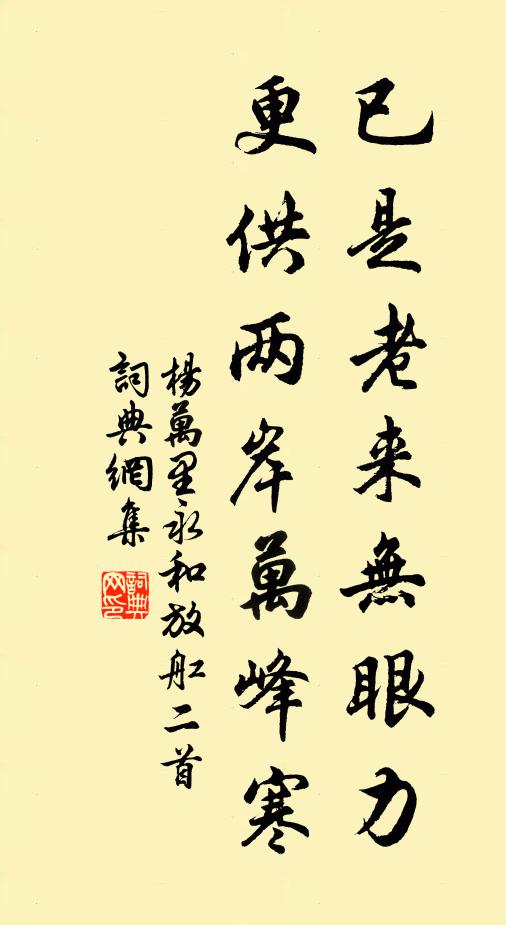 已是老来無眼力
更供两岸萬峰寒
楊萬里永和放舡二首
詞典網集
詞典网印